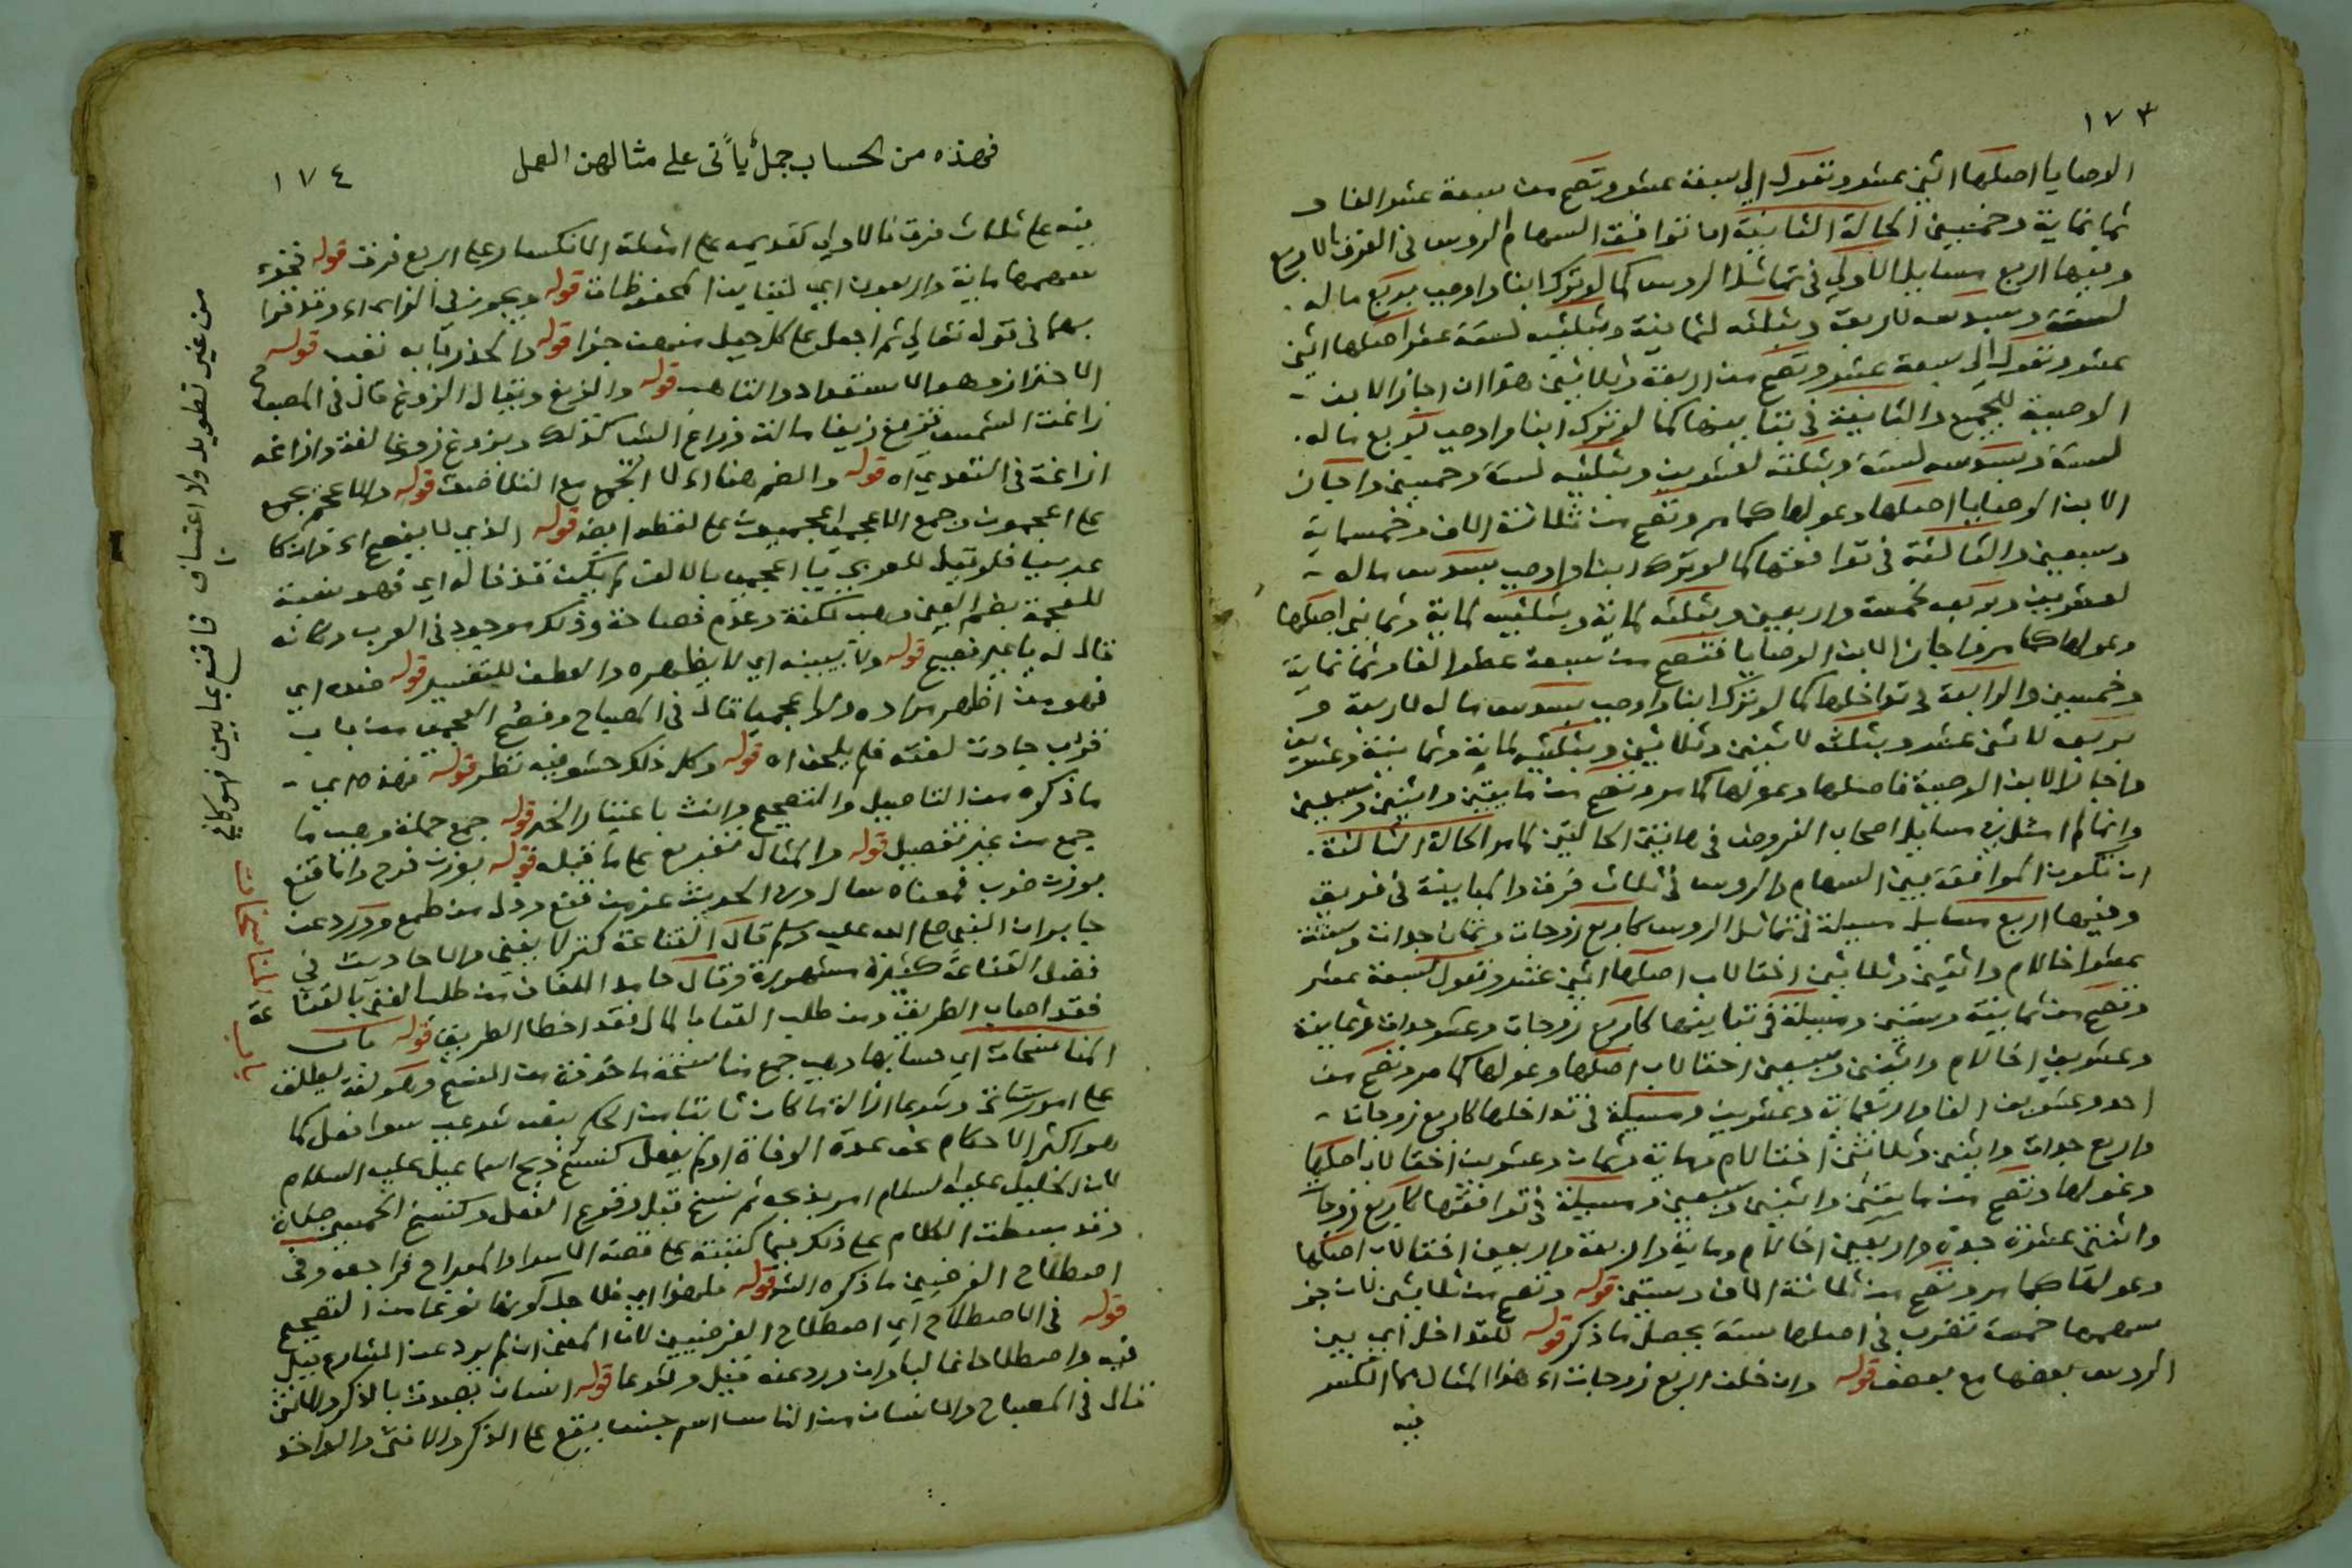 ١٧٣
الوصايا اصلها اثني عشر وتعول الي سبعة عشر وتصح من سبعة عشر الفا و
ثمانماية وخمسين الحالة الثانية اما توافق السهام الروس في الفرق الاربع
وفيها اربع مسايل الاولي في تماثل الروس كما لو ترك ابنا واوصي بربع ماله
لستة وسدسه لاربعة وبثلثه لثمانية وبثلثيه لستة عشر اصلها اثني
عشر وتعول الي سبعة عشر وتصح من اربعة وثلاثين هذا ان اجاز الابن
الوصية للجميع والثانية في تباينها كما لو ترك ابنا واوصي بربع ماله
لستة وبسدسه لستة وبثلثه لعشرين وبثلثيه لستة وخمسين واجاز
الابن الوصايا اصلها وعولها كما مر وتصح من ثلاثة الاف وخمسماية
وسبعين والثالثة في توافقها كما لو ترك ابنا واوصي بسدس ماله
لعشرين وبربعه لخمسة واربعين وبثلثه لماية وبثلثيه لماية وثمانين اصلها
وعولها كما مر واجاز الابن الوصايا فتصح من سبعة عشر الفا وثمانماية
وخمسين والرابعة في تداخلها كما لو ترك ابنا واوصي بسدس ماله لاربعة و
بربعه لاثني عشر وبثلثه لاثنين وثلاثين وبثلثيه لماية وثمانية وعشرين
واجاز الابن الوصية فاصلها وعولها كما مر وتصح من مايتين واثنين وسبعين
وانما لم امثل في مسايل اصحاب الفروض في هاتين الحالتين لما مر الحالة الثالثة
ان تكون الموافقة بين السهام والروس في ثلاث فرق والمباينة في فريق
وفيها اربع مسايل مسيلة في تماثل الروس كاربع زوجات وثمان جدات وستة
عشر اخا لام واثنين وثلاثين اختا لاب اصلها اثني عشر وتعول لسبعة عشر
وتصح من ثمانية وستين ومسيلة في تباينها كاربع زوجات وعشر جدات وثمانية
وعشرين اخا لام واثنين وسبعين اختا لاب اصلها وعولها كما مر وتصح من
احد وعشرين الفا واربعماية وعشرين ومسيلة في تداخلها كاربع زوجات
واربع جدات واثنين وثلاثين اختا لام وماية وثمان وعشرين اختا لاب اصلها
وعولها وتصح من مايتين واثنين وسبعين ومسيلة في توافقها كاربع زوجات
واثنتي عشرة جدة واربعين اخا لام وماية واربعة واربعين اختا لاب اصلها
وعولها كما مر وتصح من ثلاثة الاف وستين قوله وتصح من ثلاثين لان جز
سهمها خمسة تضرب في اصلها ستة يحصل ما ذكر قوله للتداخل اي بين
الروس بعضها مع بعض قوله وان خلف اربع زوجات اه هذا المثال مما انكسر
فيه
١٧٤
فهذه من الحساب جمل يأتي على مثالهن العمل
فيه علي ثلاث فرق فالاولي تقديمه علي امثلة الانكسار علي اربع فرق قوله فجزء
سهمها ماية واربعون اي لتباين المحفوظات قوله ويجوز في الزاي اه وقد قرا
بهما في قوله تعالي ثم اجعل علي كل جبل منهن جزا قوله واحذر تابه نفس قوله
الاحتراز وهو الاستعداد والتاهب قوله والزيغ ويقال الزوغ قال في المصباح
زاغت الشمس تزيغ زيغا مالت وزاغ الشي كذلك ويزوغ زوغا لغة وازاغه
ازاغة في التعدي اه قوله والضم هنا اولا الجمع مع التناقض قوله والاعجم يجمع
علي اعجمون وجمع الاعجمي اعجميون علي لفظه ايضا قوله الذي لا يفصح اه وان كان
عربيا فلو قيل للعربي يا اعجمي بالالف لم يكن قذفا له اي فهو نسبة
للعجمة بضم العين وهي لكنة وعدم فصاحة وذلك موجود في العرب وكانه
قال له يا غير فصيح قوله ولا يبينه اي لا يظهره والعطف للتفسير قوله ضده اي
فهو من اظهر مراده ولو اعجميا قال في المصباح وفصح العجمي من باب
قرب جادت لغته فلم يلحن اه قوله وكل ذلك حشو فيه نظر قوله فهذه اي
ما ذكره من التاصيل والتصحيح وانث باعتبار الخبر قوله جمع جملة وهي ما
جمع من غير تفصيل قوله والمثال تفريع علي ما قبله قوله بوزن فرح واما قنع
بوزن ضرب فمعناه سال وفي الحديث عز من قنع وذل من طمع وورد عن
جابر ان النبي صلي الله عليه وسلم قال القناعة كنز لا يفني والاحاديث في
فضل القناعة كثيرة مشهورة وقال حامد اللفاف من طلب الغني بالقناعة
فقد اصاب الطريق ومن طلب الغنا بالمال فقد اخطا الطريق قوله باب
المناسخات اي حسابها وهي جمع مناسخة ماخوذة من النسخ وهو لغة يطلق
علي امور ثلاثة وشرعا ازالة ما كان ثابتا من الحكم بنص شرعي سوا فعل كما
هو اكثر الاحكام نحو عدة الوفاة او لم يفعل كنسخ ذبح اسماعيل عليه السلام
لان الخليل عليه السلام امر بذبحه ثم نسخ قبل وقوع الفعل وكنسخ الخمسين صلاة
وقد بسطت الكلام علي ذلك فيما كتبته علي قصة الاسرا والمعراج فراجعه وفي
اصطلاح الفرضيين ما ذكره الش قوله فلهذا اي فلاجل كونها نوعا من التصحيح
قوله في الاصطلاح اي اصطلاح الفرضيين لان المعني ان لم يرد عن الشارع قيل
فيه واصطلاحا غالبا وان ورد عنه قيل وشرعا قوله انسان يصدق بالذكر والانثي
قال في المصباح والانسان من الناس اسم جنس يقع علي الذكر والانثي والواحد
من غير تطويل ولا اعتساف فاقنع بما بين فهو كافي
باب المناسخات